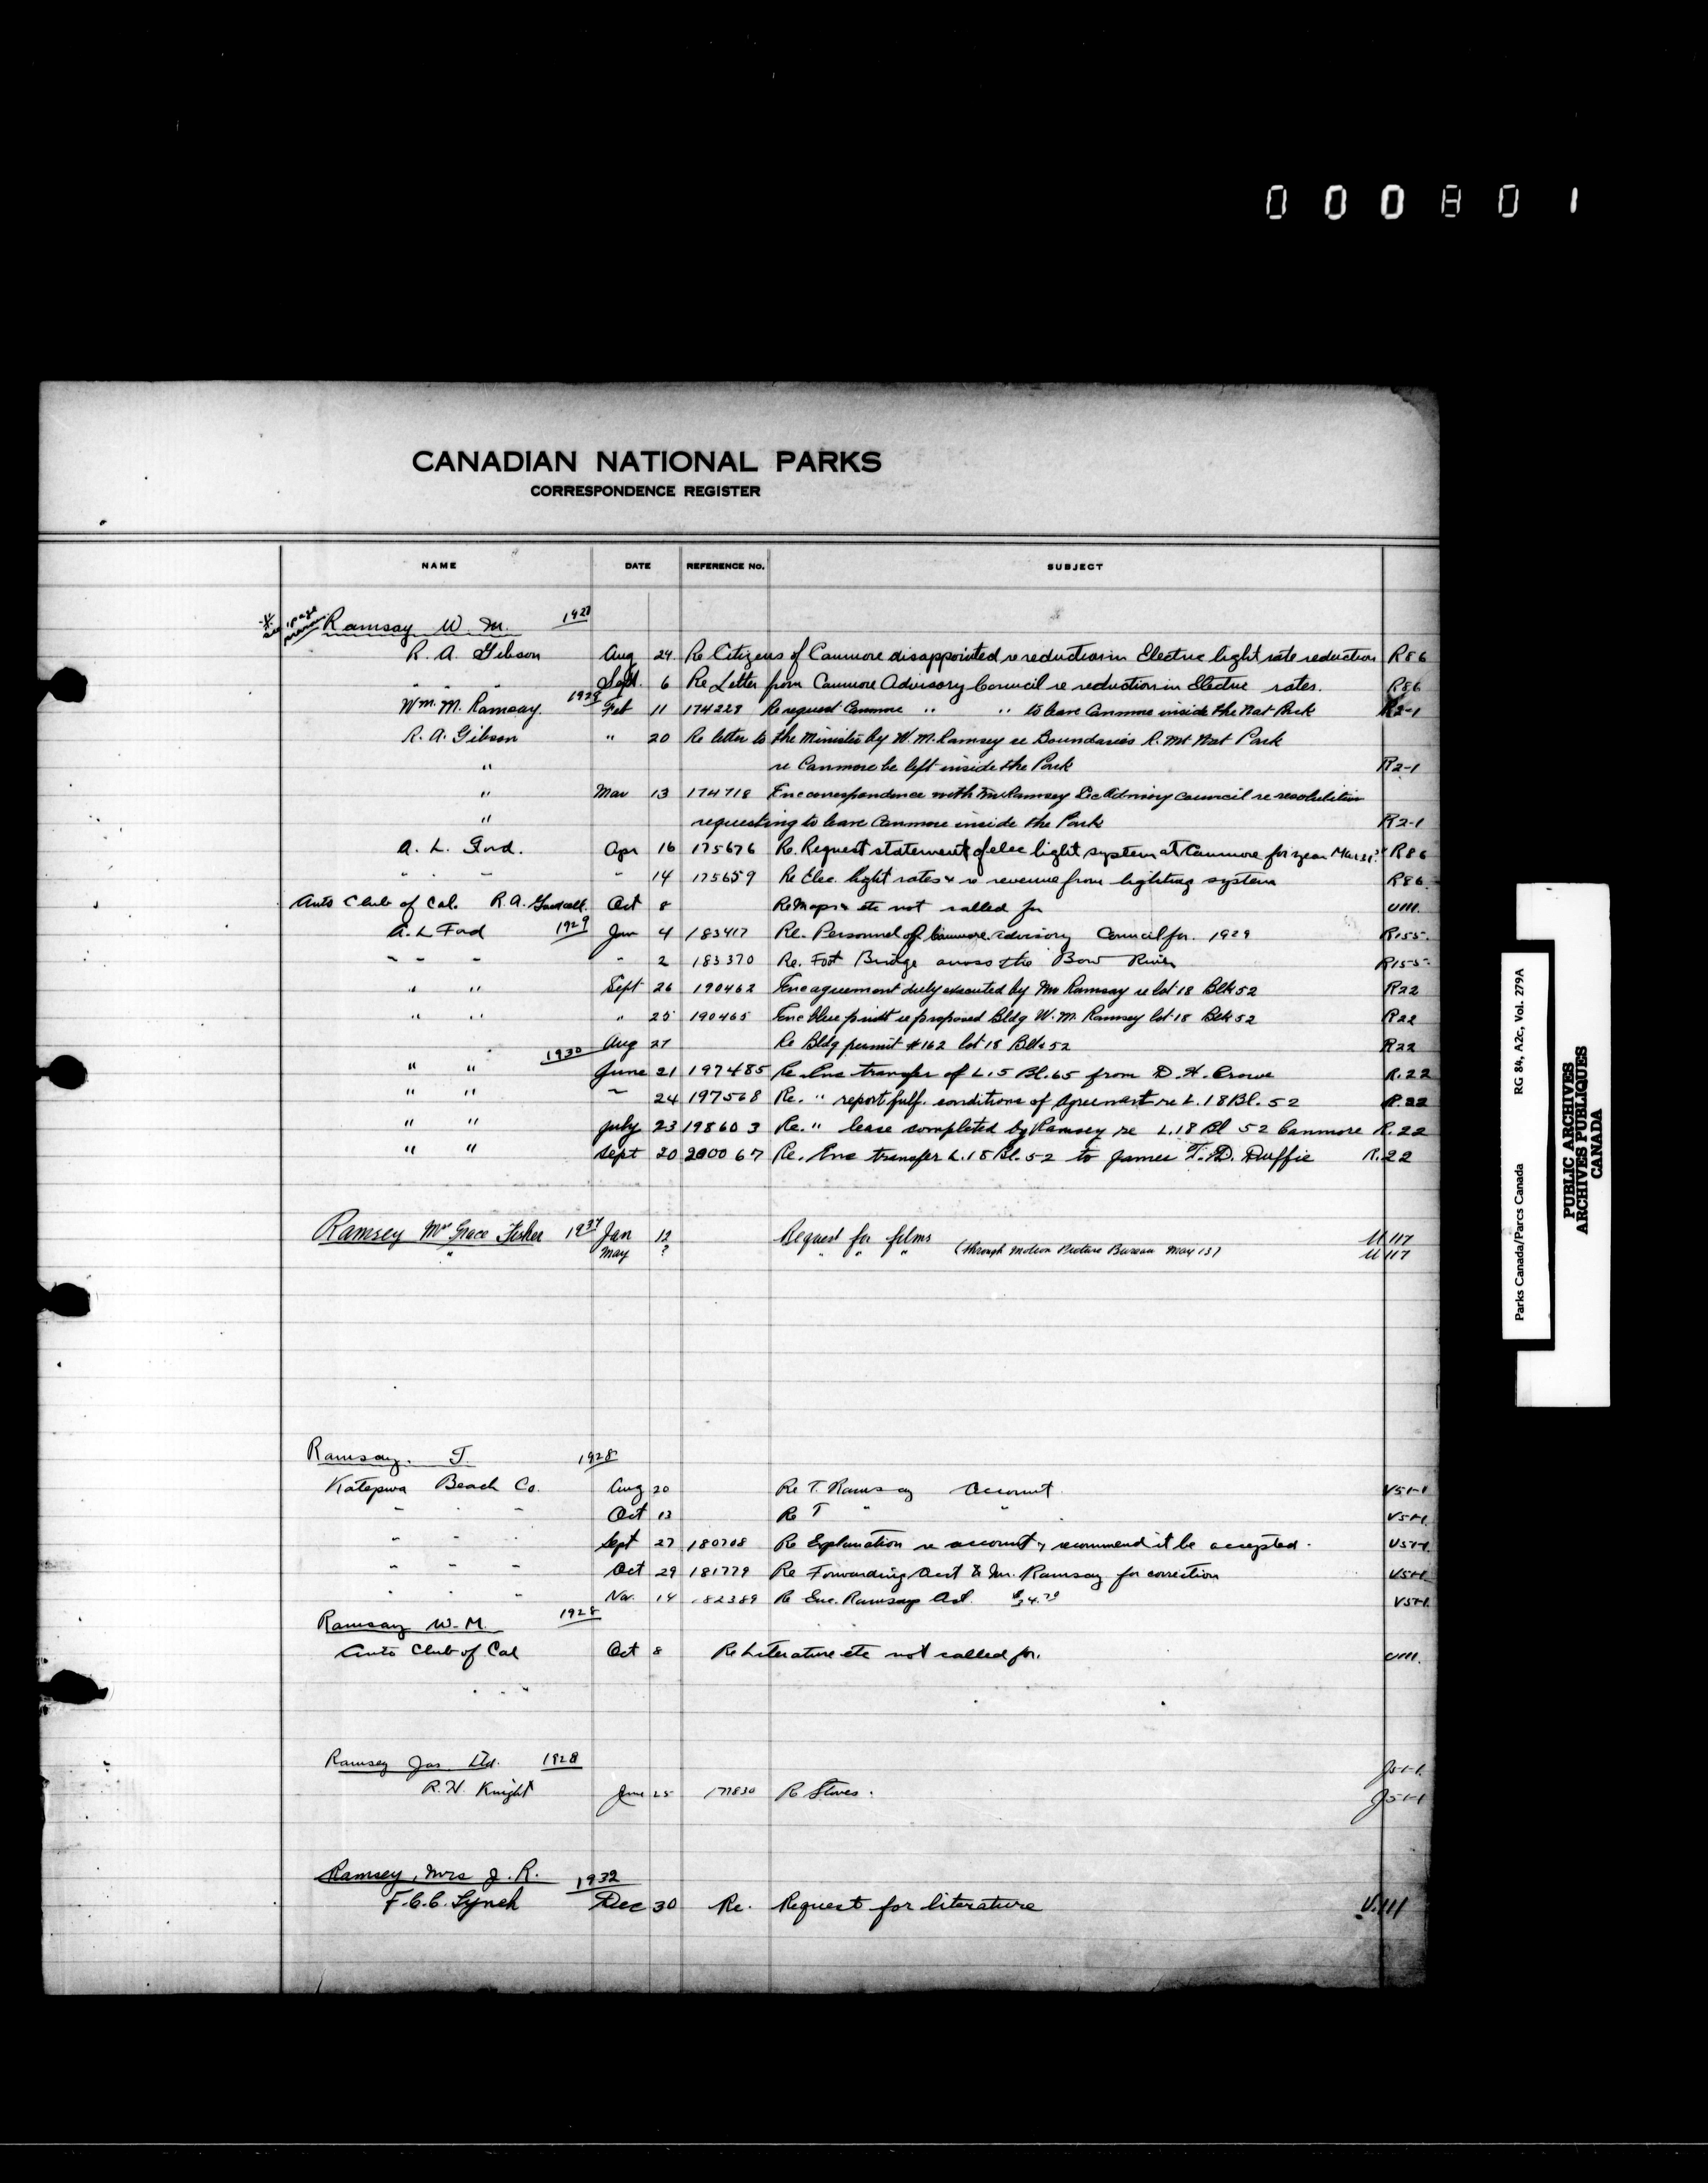 000801
CANADIAN NATIONAL PARKS
CORRESPONDENCE REGISTER
NAME DATE REFERENCE No. SUBJECT
* see page previous Ramsay W. M. 1927
R. A. Gibson Aug 24 Re Citizens of Canmore disappointed re reduction in Electric light rate reduction R86
" " " Sept. 6 Re Letter from Canmore Advisory Council re reduction in Electric rates. R86
Wm. M. Ramsay. 1928 Feb 11 174229 Re request Canmore " " to leave Canmore inside the Nat Park R2-1
R. A. Gibson " 20 Re letter to the Minister by W. M. Ramsey re Boundaries R. Mt Nat Park
" re Canmore be left inside the Park R2-1
" Mar 13 174718 Enc correspondence with Mr Ramsey Sec Advisory Council re resolution
" requesting to leave Canmore inside the Park R2-1
A. L. Ford. Apr 16 175676 Re. Request statement of elec light system at Canmore for year Mar 31st R86
" " " " 14 175659 Re Elec. light rates & re revenue from lighting system R86
Auto Club of Cal. R. A. Oct 8 Re Maps etc not called for U111.
A. L Ford 1929 Jan 4 183417 Re. Personnel of Canmore Advisory Council for 1929 R155.
" " " " 2 183370 Re. Foot Bridge across the Bow River R155
" " Sept 26 190462 Enc agreement duly executed by Mr Ramsay re lot 18 Blk 52 R22
" " " 25 190465 Enc blue print re proposed Bldg W. M. Ramsey lot 18 Blk 52 R22
" Aug 27 Re Bldg permit #162 lot 18 Blk 52 R22
" " 1930 June 21 197485 Re. Enc transfer of L.5 Bl.65 from D. H. Crowe R.22
" " " 24 197568 Re. " report fulf. conditions of Agreement re L.18 Bl. 52 R.22
" " July 23 198603 Re. " lease completed by Ramsey re L.18 Bl 52 Canmore R.22
" " Sept 20 200067 Re. Enc transfer L.18 Bl. 52 to James T. D. Duffie R.22
Ramsey Mrs Grace Fisher 1937 Jan 12 Request for films U117
" May ? " " " (through Motion Picture Bureau May 13) U117
Ramsay. T. 1928
Katepwa Beach Co. Aug 20 Re T. Ramsay Account V51-1
" " " Oct 13 Re T " " V51-1.
" " " Sept 27 180708 Re Explanation re account & recommend it be accepted. V51-1
" " " Oct 29 181779 Re Forwarding Acct to Mr. Ramsay for correction V51-1
" " " Nov. 14 182389 Re Enc. Ramsays Act. V51-1.
Ramsay W. M. 1928
Auto Club of Cal Oct 8 Re Literature etc not called for. U111.
Ramsey Jas Ltd. 1928 J51-1.
R. H. Knight June 25 177830 Re Stoves. J51-1
Ramsey, Mrs J. R. 1932
F. C. C. Lynch Dec 30 Re. Request for literature U.111
Parks Canada/Parcs Canada RG 84, A2c, Vol. 279A
PUBLIC ARCHIVES
ARCHIVES PUBLIQUES
CANADA